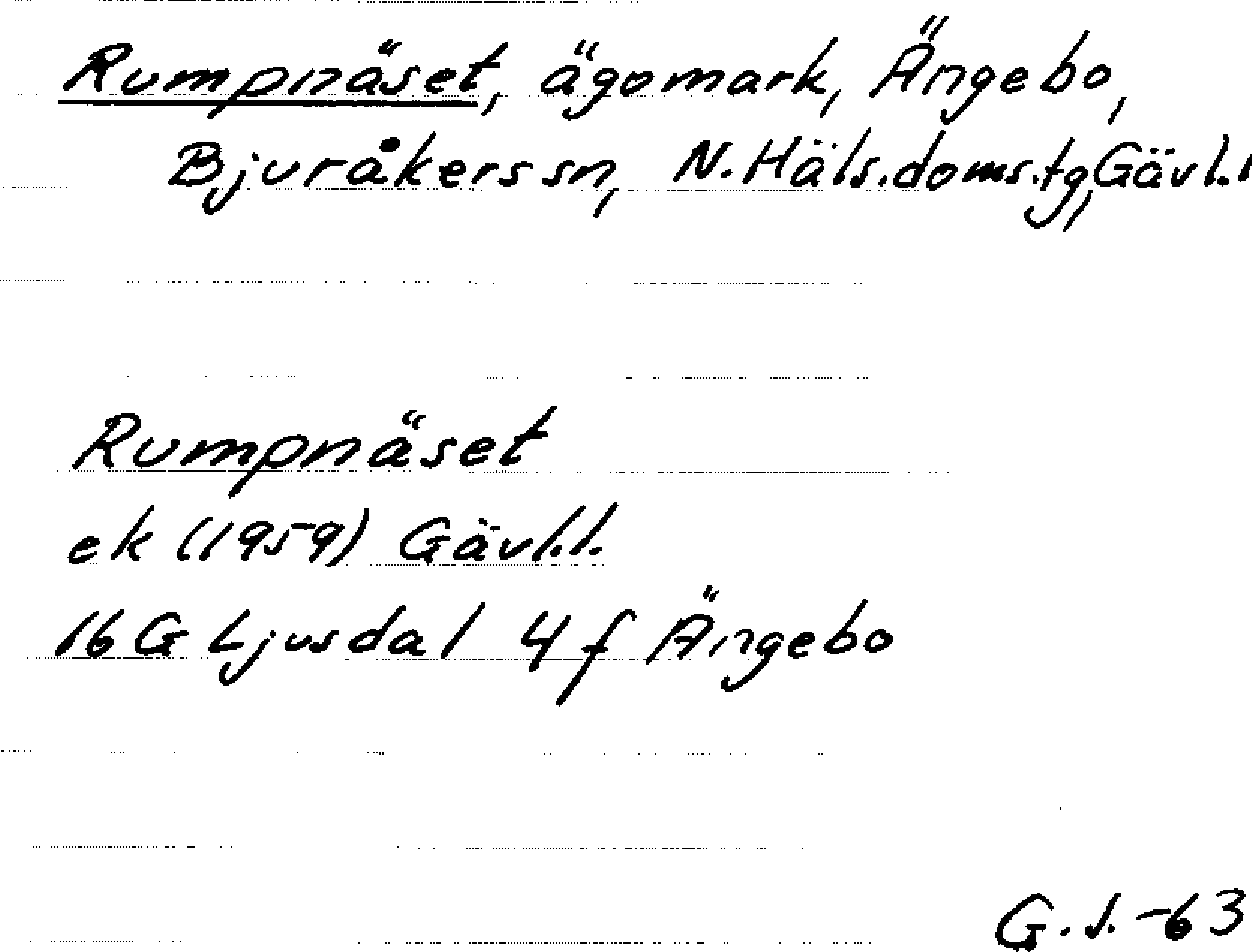 Rumpnäset, ägomark, Ängebo,
Bjuråkers sn, N. Häls. doms. tg, Gävl. l
Rumpnäset
ek (1959) Gävl. l.
16 G Ljusdal 4 f Ängebo
G. J. -63